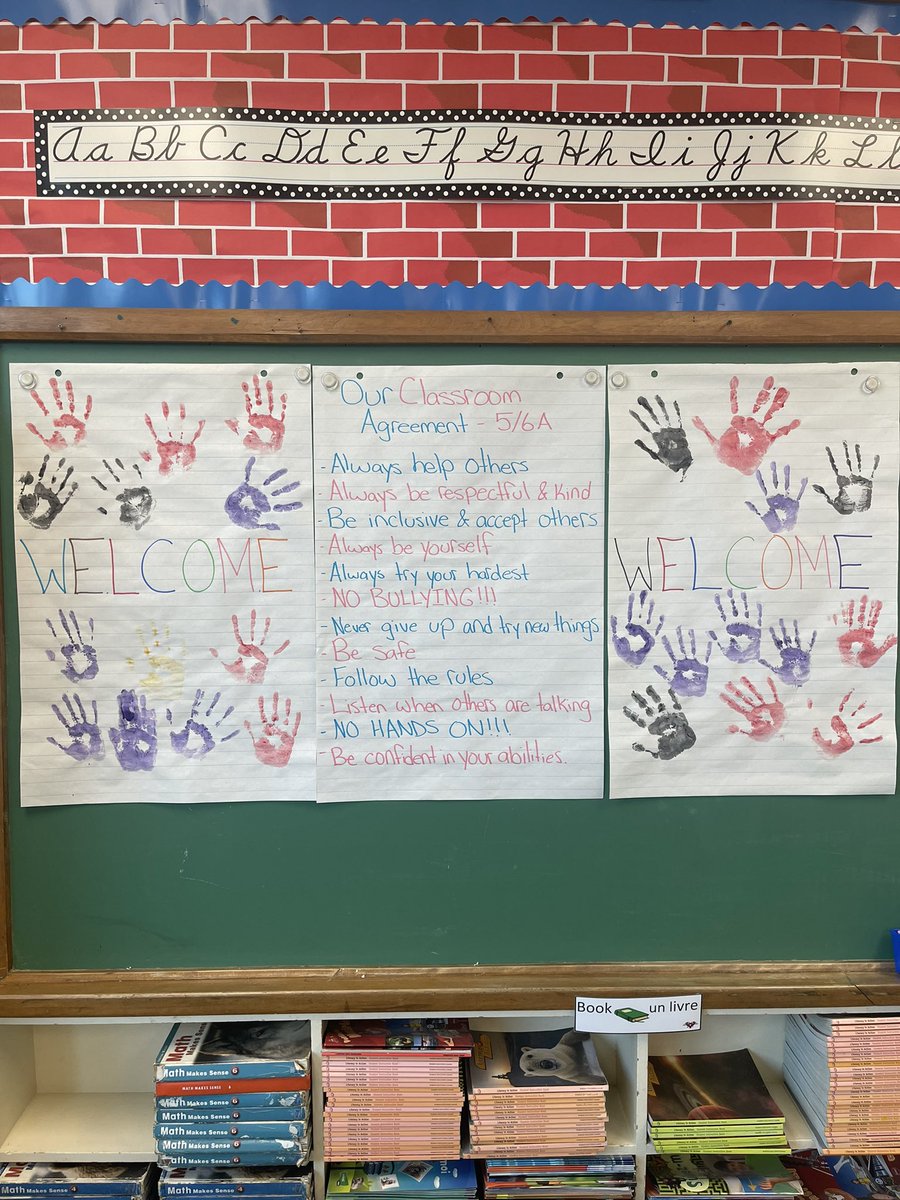 Aa Bb Cc Dd Ee Ff Gg Hh Ii Jj Kk Ll
WELCOME
Our Classroom
Agreement - 5/6A
- Always help others
- Always be respectful & kind
- Be inclusive & accept others
- Always be yourself
- Always try your hardest
- NO BULLYING!!!
- Never give up and try new things
- Be safe
- Follow the rules
- Listen when others are talking
- NO HANDS ON!!!
- Be confident in your abilities.
WELCOME
Book un livre
Math
Makes Sense 6
MATH MAKES SENSE 6
Math Makes Sense 6
Math Makes Sense 6
Math Makes Sense 6
Math Makes Sense 6
Math Makes Sense 6